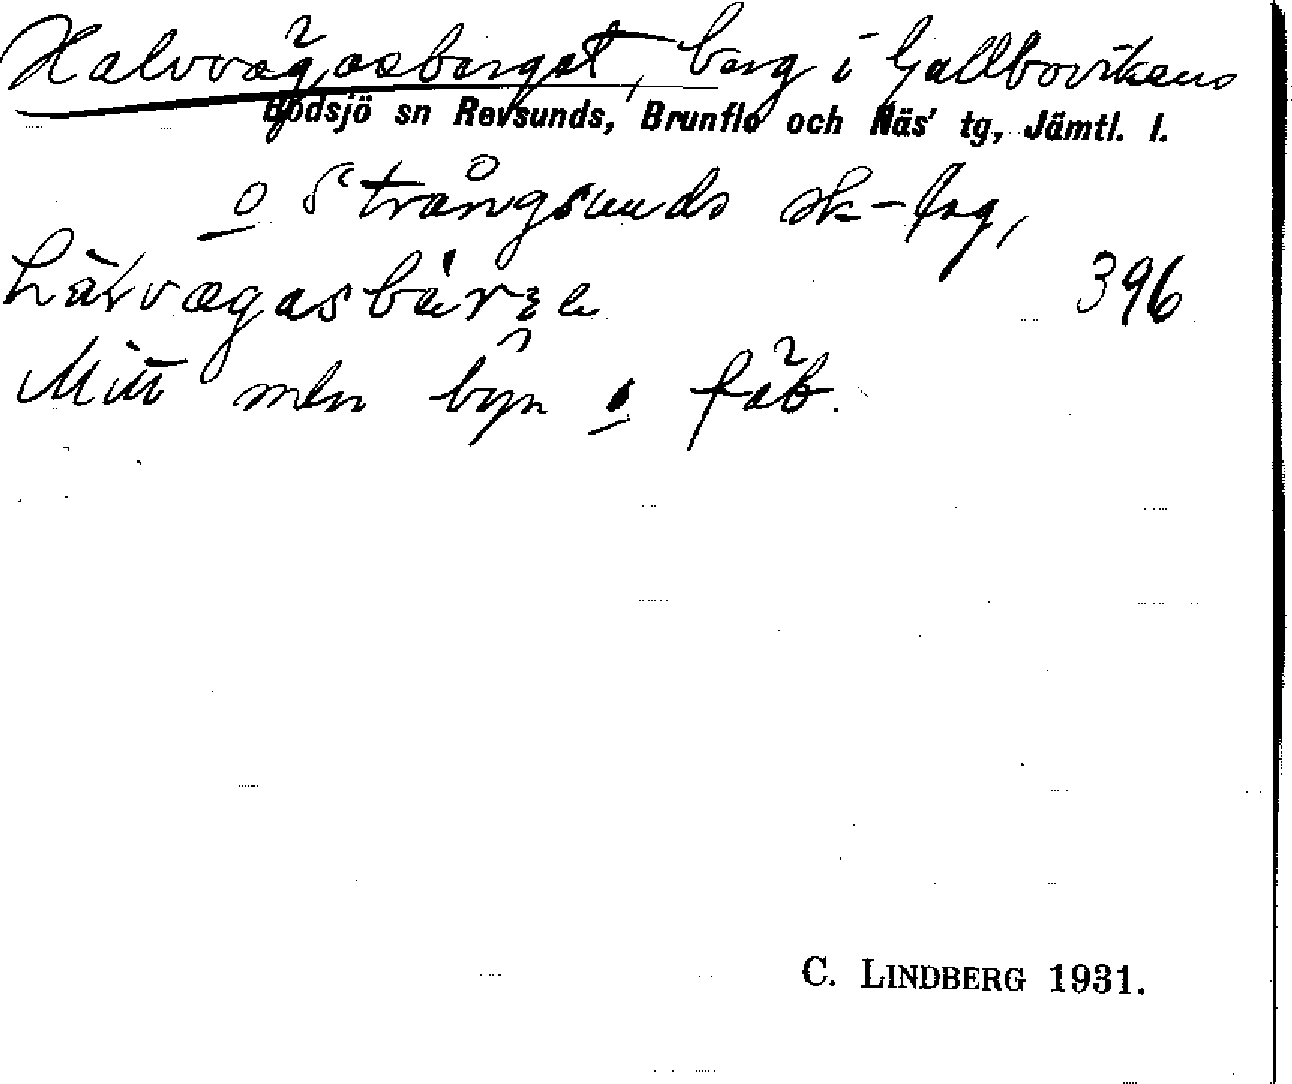 Halvvägasberget, berg i Gallbovikens
Bodsjö sn Revsunds, Brunflo och Näs' tg, Jämtl. l.
o Strångsunds sk-lag,
396
Mitt mln byn o fäb.
C. LINDBERG 1931.